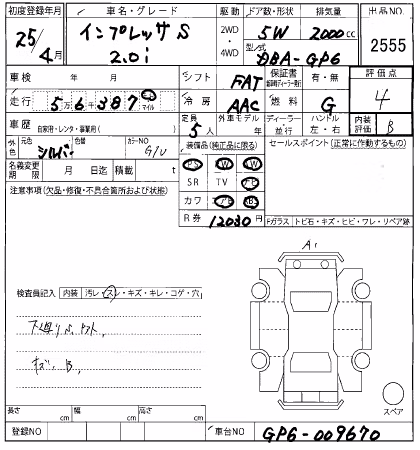 初度登録年月 車名・グレード 駆動 ドア数・形状 排気量 出品NO.
25/4月 インプレッサS 2.0i 2WD・4WD 5W 2000cc 2555
型式 DBA-GP6
車検 年 月 シフト FAT 保証書 有・無 評価点
走行 5万6千387 キロ マイル 冷房 AAC 燃料 G 4
車歴 自家用・レンタ・事業用( ) 定員 5人 外車モデル 年 ディーラー・並行 ハンドル 左・右 内装評価 B
外色 元色 シルバー 色替 カラーNO G1U 装備品(純正品に限る) セールスポイント(正常に作動するもの)
名義変更期限 月 日迄 積載 t PS AW PW
注意事項(欠品・修復・不具合箇所および状態) SR TV ナビ
カワ エアB ABS
R券 12030円 Fガラス トビ石・キズ・ヒビ・ワレ・リペア跡
A1
検査員記入 内装 汚レ・スレ・キズ・キレ・コゲ・穴
キズ、B、
スペア
長さ cm 幅 cm 高さ cm
登録NO 車台NO GP6-009670